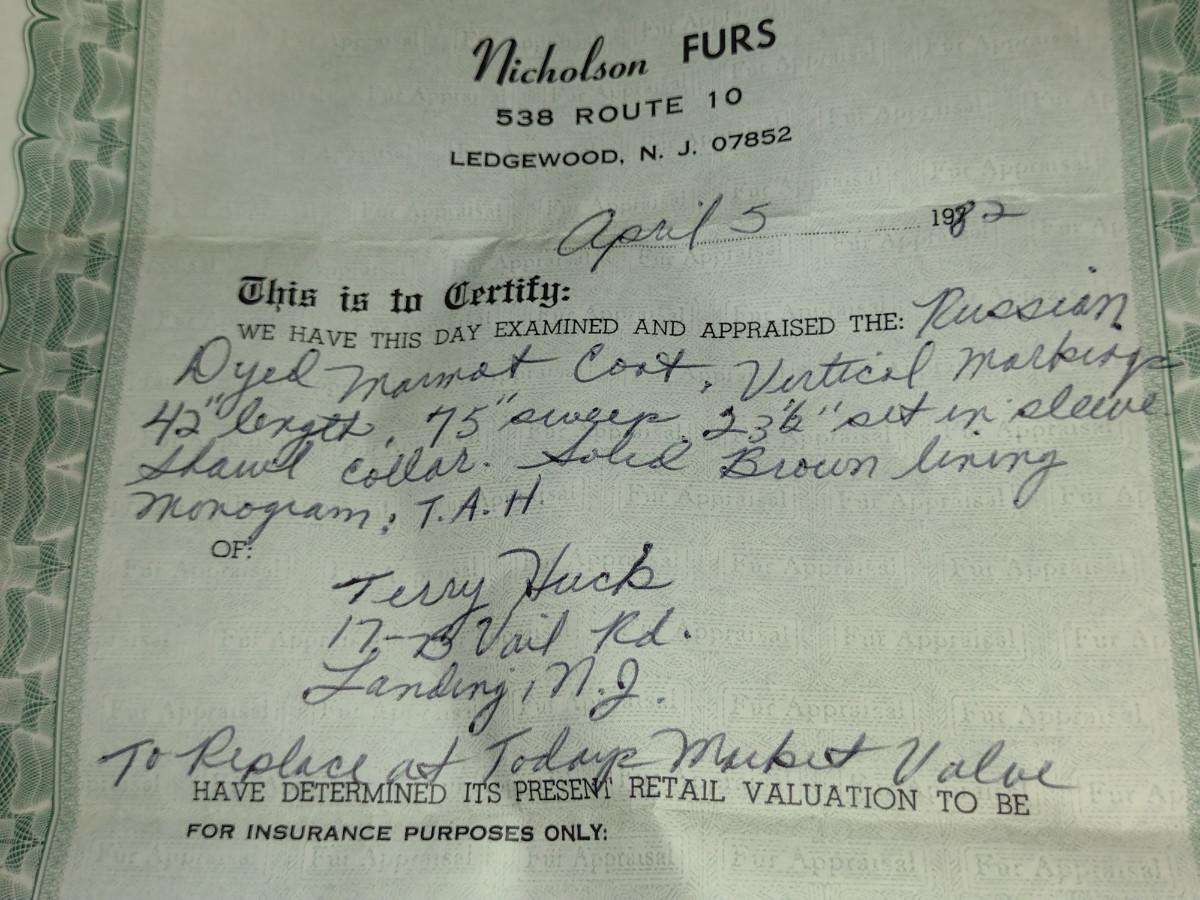 Nicholson FURS
538 ROUTE 10
LEDGEWOOD, N. J. 07852
April 5 1982
This is to Certify:
WE HAVE THIS DAY EXAMINED AND APPRAISED THE: Russian
Dyed Marmot Coat, Vertical Markings
42" length, 75" sweep, 23½" set in sleeve
Shawl collar. Solid Brown lining
Monogram: T.A.H.
OF:
Terry Huck
17-B Vail Rd.
Landing, N.J.
To Replace at Todays Market Value
HAVE DETERMINED ITS PRESENT RETAIL VALUATION TO BE
FOR INSURANCE PURPOSES ONLY: